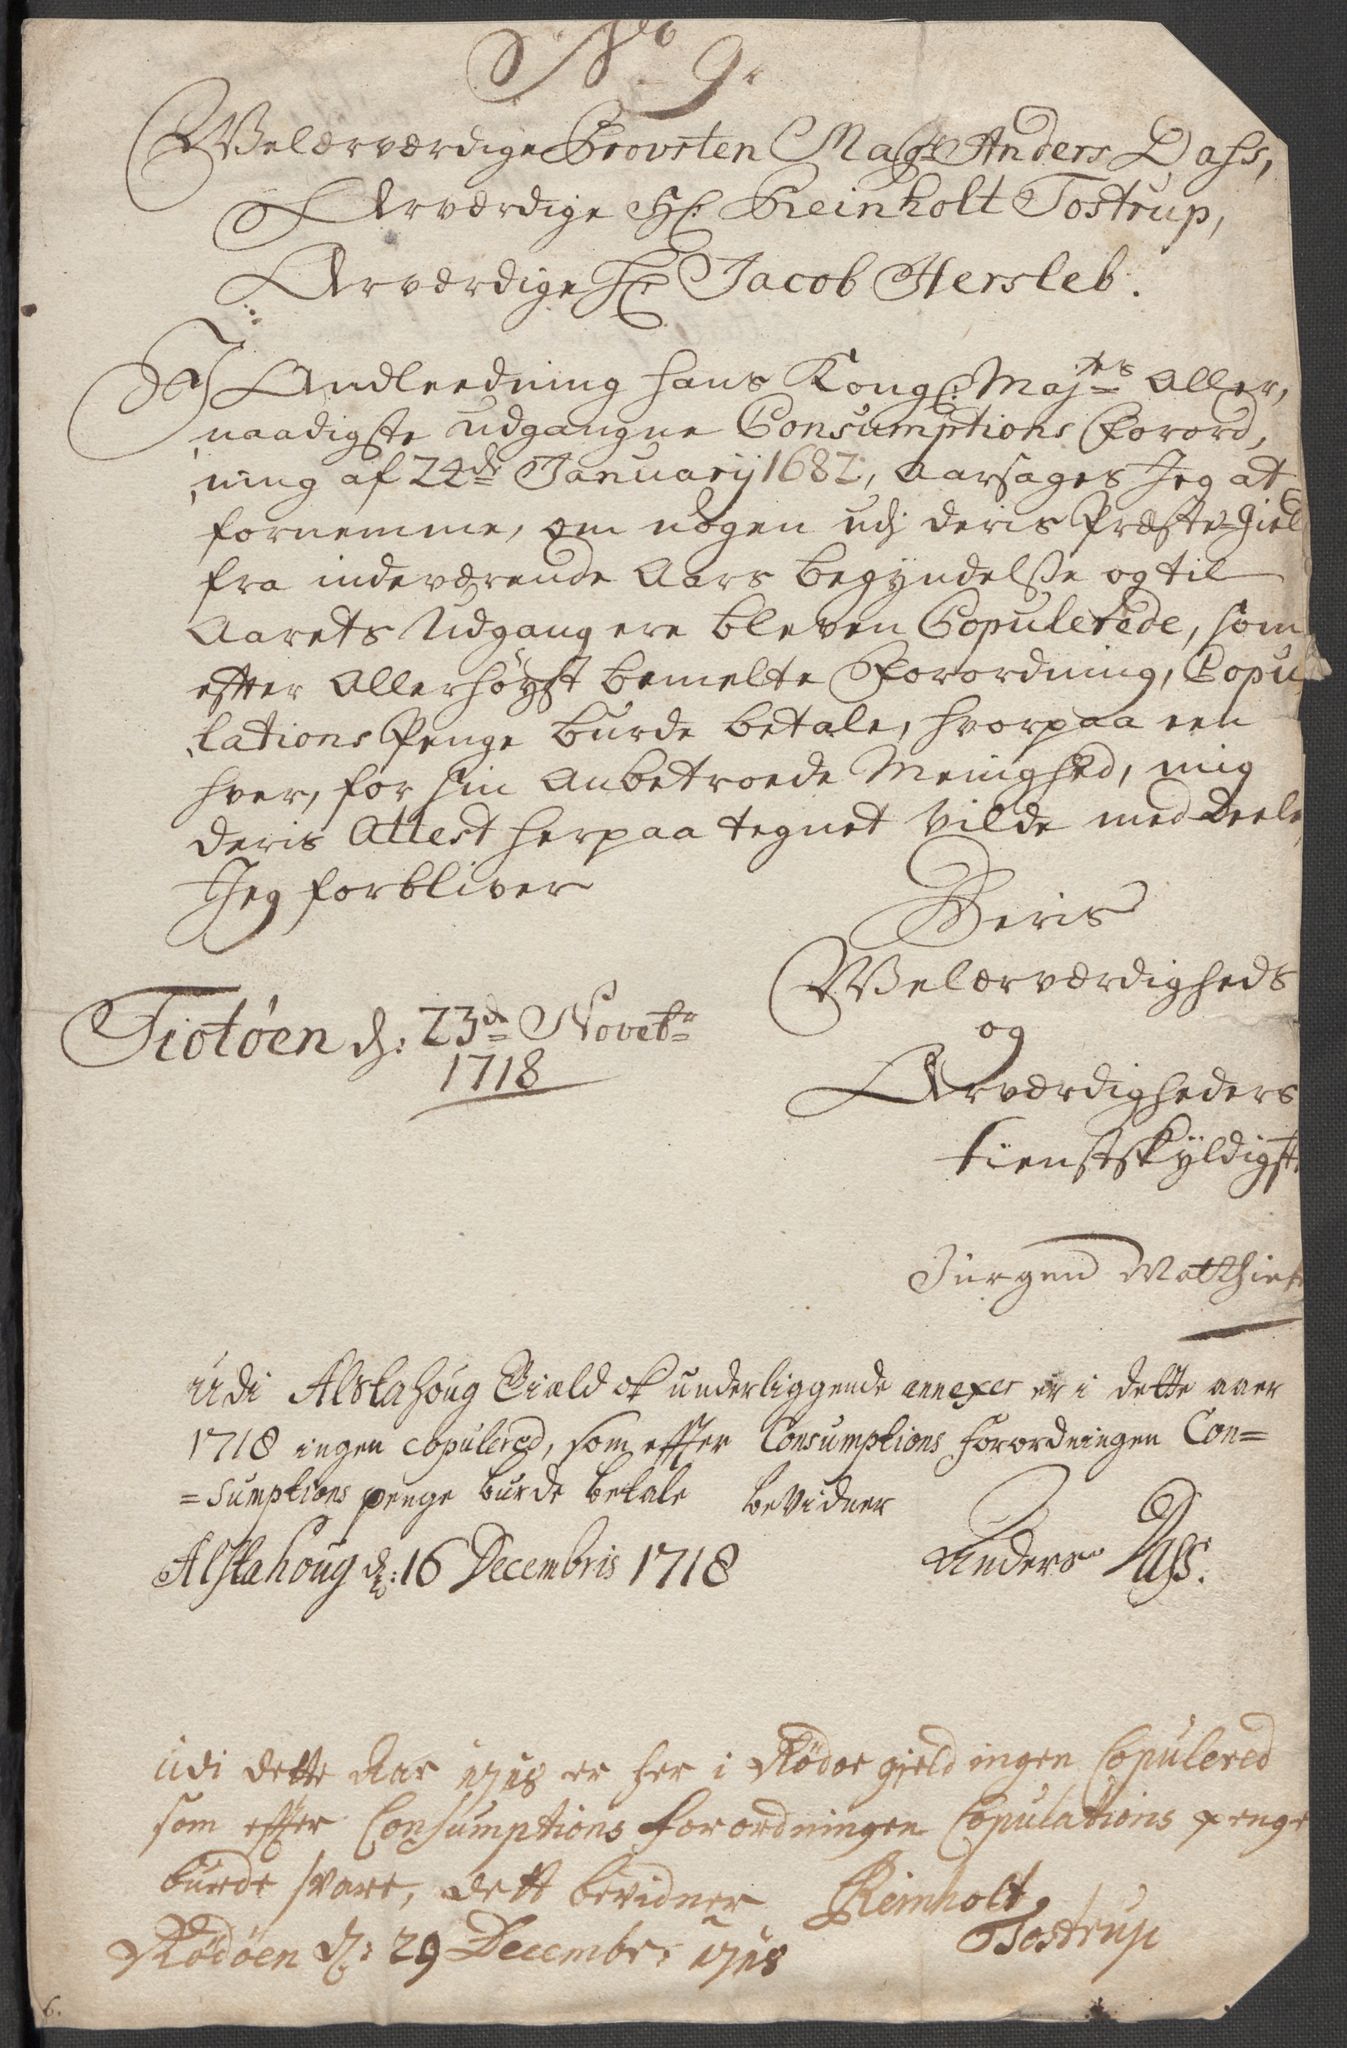 No 9.
Welærværdige Provsten Magr Anders Dass,
Ærværdige Hr Reinholt Tostrup,
Ærværdige Hr Jacob Hersleb.
I Andleedning hans Kongl: Majtes Aller,
naadigste udgangne Consumptions Forord,
,ning af 24de January 1682, aarsages Jeg at
fornemme, om nogen udj deris Præste-Giel
fra indeværende Aars begyndelße og til
Aarets Udgang ere bleven Copulerede, som
efter Allerhöyst bemelte Forordning, Copu
lations Penge burde betale, hvorpaa een
hver, for sin Anbetroede Menighed, mig
deris Attest herpaa tegnet vilde med deele
Jeg forbliver
Deris
Welærværdigheds
og
Ærværdigheders
tienstskyldigst
Tiotöen d: 23de Novebr
1718
Jürgen Matthie
Udi Alstahoug Giæld ok underliggende annexer er i dette aar
1718 ingen copulered, som effter Consumptions forordningen Con=
=sumptions penge burde betale bevidner
Alstahoug d: 16 Decembris 1718
Anders Dass.
Udi dette Aar 1718 er her i Rödøe gjeld ingen Copulered
som effter Consumptions forordningen Copulations penge
burde svare, dett bevidner Reinholt
Tostrup
Rödöen d: 29 Decembr: 1718
6.